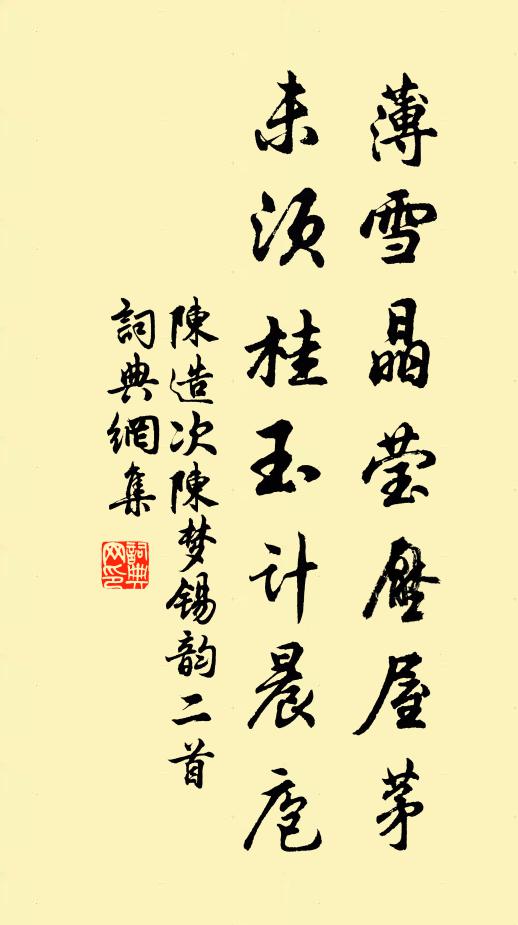 薄雪晶莹壓屋茅
未須桂玉计晨庖
陳造次陳梦锡韵二首
詞典網集
詞典网印